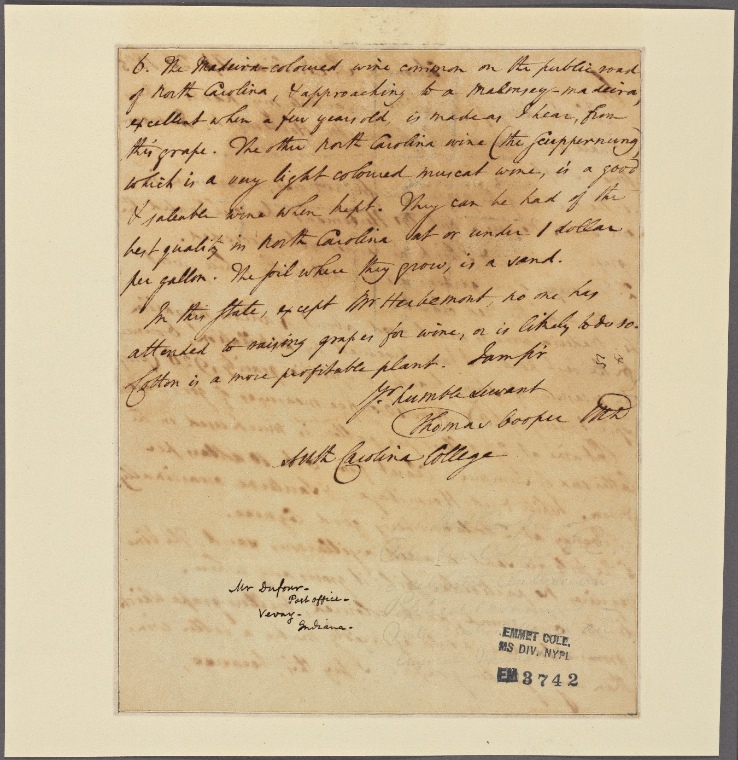 6. The Madeira-coloured wine common on the public road
of North Carolina, & approaching to a Malmsey-madeira,
excellent when a few years old, is made as I hear, from
this grape. The other North Carolina wine (the Scuppernung)
which is a very light coloured muscat wine, is a good
& saleable wine when kept. They can be had of the
best quality in North Carolina at or under 1 dollar
per gallon. The soil where they grow, is a sand.
In this State, except Mr Herbemont, no one has
attended to raising grapes for wine, or is likely to do so.
Cotton is a more profitable plant. I am sir
Yr humble servant
Thomas Cooper MD
South Carolina College
Mr Dufour-
Post office-
Vevay-
Indiana-
EMMET COLL.
MS DIV. NYPL
EM 3742